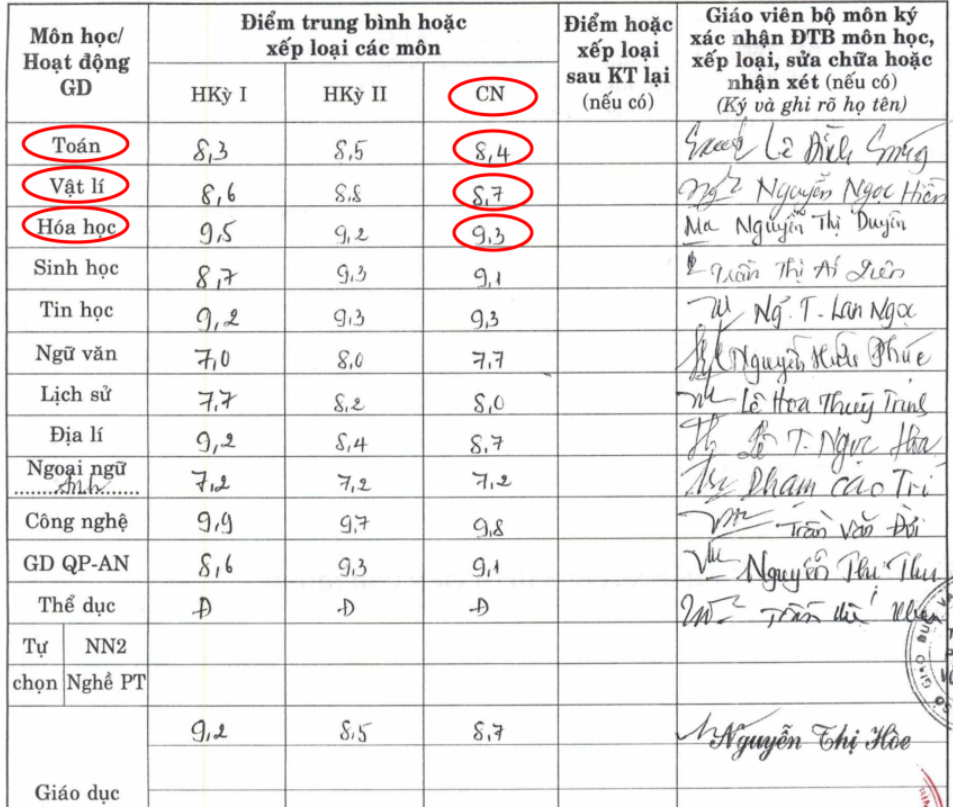 Môn học/
Hoạt động
GD
Điểm trung bình hoặc
xếp loại các môn
HKỳ I HKỳ II CN
Điểm hoặc
xếp loại
sau KT lại
(nếu có)
Giáo viên bộ môn ký
xác nhận ĐTB môn học,
xếp loại, sửa chữa hoặc
nhận xét (nếu có)
(Ký và ghi rõ họ tên)
Toán 8,3 8,5 8,4 Lê Đình
Vật lí 8,6 8,8 8,7 Nguyễn Ngọc Hiền
Hóa học 9,5 9,2 9,3 Nguyễn Thị Duyên
Sinh học 8,7 9,3 9,1 Trần Thị Ái
Tin học 9,2 9,3 9,3 Ng. T. Lan Ngọc
Ngữ văn 7,0 8,0 7,7 Nguyễn Hữu Phúc
Lịch sử 7,7 8,2 8,0 Lê Hoa Thùy Trinh
Địa lí 9,2 8,4 8,7 Lê T. Ngọc Hòa
Ngoại ngữ
Anh 7,2 7,2 7,2 Phạm Cao Trí
Công nghệ 9,9 9,7 9,8 Trần Văn
GD QP-AN 8,6 9,3 9,1 Nguyễn Thu
Thể dục Đ Đ Đ Trần
Tự NN2
chọn Nghề PT
9,2 8,5 8,7 Nguyễn Thị Hòe
Giáo dục